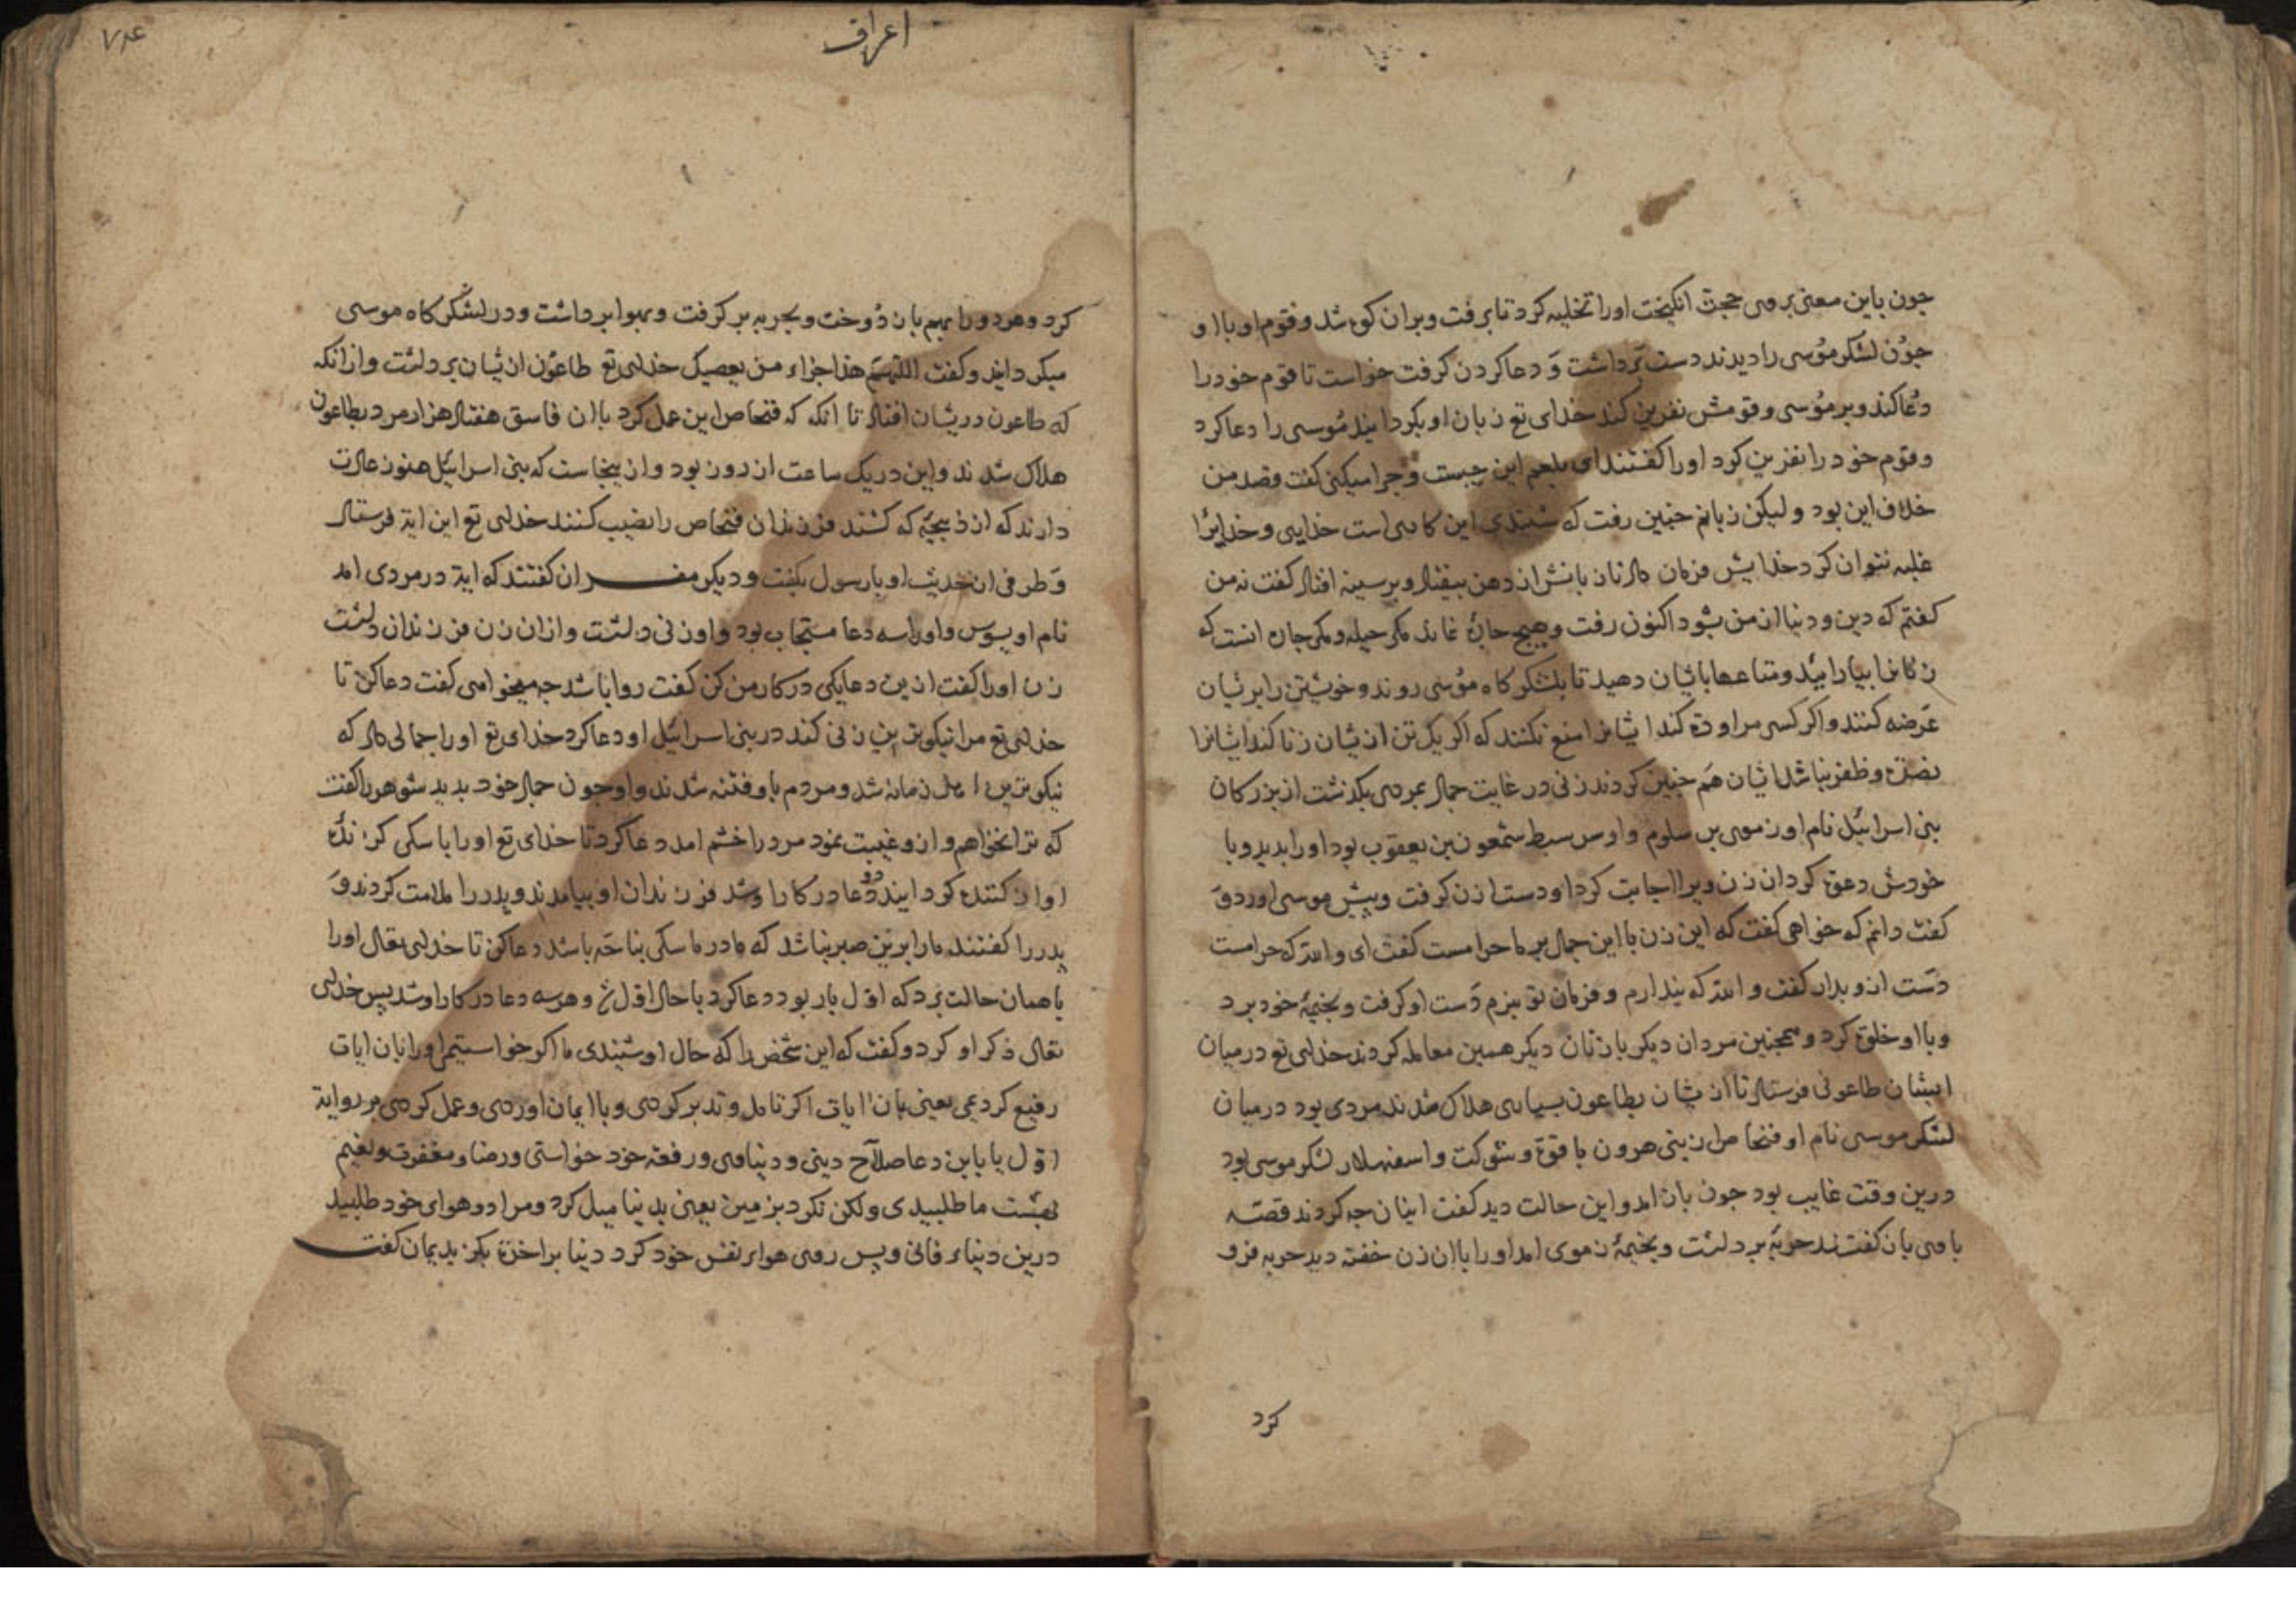 جون باین معنی بروی حجت انکیخت اورا تخلیه کرد تا برفت وبران کوه شد وقوم او با او
جون لشکر موسی را دیدند دست برداشت و دعا کردن کرفت خواست تا قوم خود را
دعا کند وبر موسی وقومش نفرین کند خدای تع زبان او بکردانید موسی را دعا کرد
وقوم خود را نفرین کرد اورا کفتند ای بلعم این جیست وجرا میکنی کفت قصد من
خلاف این بود ولیکن زبانم جنین رفت که شنیدی این کاری است خدایی وخدایرا
غلبه نتوان کرد خدایش فرمان داد تا زبانش از دهن بیفتاد وبر سینه افتاد کفت نه من
کفتم که دین ودنیا از من بشود اکنون رفت وهیج جارهٔ نماند مکر حیله ومکر جاره انست که
زنانرا بیارایید ومتاعها باشان دهید تا بلشکرکاه موسی روند وخویشتن را بریشان
عرضه کنند واکر کسی مراوده کند ایشانرا منع نکنند که اکر یک تن ازیشان زنا کند ایشانرا
نصرة وظفر نباشد ایشان هم جنین کردند زنی در غایت جمال بمردی بکذشت از بزرکان
بنی اسرائیل نام او زموی بن سلوم واو سر سبط شمعون بن یعقوب بود اورا بدید وبا
خودش دعوة کرد ان زن ویرا اجابت کرد او دست زن کرفت وپیش موسی اورد و
کفت دانم که خواهی کفت که این زن با این جمال بر ما حرامست کفت ای والله که حرامست
دست ازو بدار کفت والله که ندارم وفرمان تو نبرم دست او کرفت وبخیمهٔ خود برد
وبا او خلوة کرد وهمجنین مردان دیکر با زنان دیکر همین معامله کردند خدای تع درمیان
ایشان طاعونی فرستاد تا ازیشان بطاعون بسیاری هلاک شدند مردی بود درمیان
لشکر موسی نام او فنحاص از بنی هرون با قوة وشوکت واسفهسلار لشکر موسی بود
درین وقت غایب بود جون باز امد واین حالت دید کفت اینان جه کردند قصّه
با وی باز کفتند حربهٔ برداشت وبخیمهٔ زموی امد اورا با ان زن خفته دید حربه فرو
کرد
اعراف
۷۸۴
کرد وهردو را بهم باز دوخت وبحربه بر کرفت وبهوا برداشت ودر لشکرکاه موسی
میکردانید وکفت اللّهمّ هذا جزاء من یعصیک خدای تع طاعون ازیشان برداشت واز انکه
که طاعون دریشان افتاد تا انکه که فنحاص این عمل کرد با ان فاسق هفتاد هزار مرد بطاعون
هلاک شدند واین در یک ساعت از روز بود وازینجاست که بنی اسرائیل هنوز عادت
دارند که از ذبیحهٔ که کشند فرزندان فنحاص را نصیب کنند خدای تع این ایة فرستاد
وطرفی از حدیث او با رسول بکفت ودیکر مفسران کفتند که ایة در مردی امد
نام او بسوس واورا سه دعا مستجاب بود واو زنی داشت وازان زن فرزندان داشت
زن اورا کفت ازین دعا یکی در کار من کن کفت روا باشد جه میخواهی کفت دعا کن تا
خدای تع مرا نیکوترین زنی کند در بنی اسرائیل او دعا کرد خدای تع اورا جمالی داد که
نیکوترین اهل زمانه شد ومردم باو فتنه شدند واو جون جمال خود بدید شوهر را کفت
که ترا نخواهم وازو غیبت نمود مرد را خشم امد دعا کرد تا خدای تع اورا با سکی کرنده
اواز کننده کردانید دو دعا در کار او شد فرزندان او بیامدند وپدر را ملامت کردند و
پدر را کفتند ما را برین صبر نباشد که مادر ما سکی نباحه باشد دعا کن تا خدای تعالی اورا
با همان حالت برد که اول بار بود دعا کرد با حال اول شد وهرسه دعا در کار او شد پس خدای
تعالی ذکر او کرد وکفت که این شخص را که حال او شنیدی ما اکر خواستیم اورا بان ایات
رفیع کردیمی یعنی بان ایات اکر تامل وتدبر کردی وبا ایمان اوردی وعمل کردی بر روایة
اول یا باین دعا صلاح دینی ودنیاوی ورفعة خود خواستی ورضا ومغفرت ونعیم
بهشت ما طلبیدی ولکن نکرد بزمین یعنی بدنیا میل کرد ومراد وهوای خود طلبید
درین دنیاء فانی وپس روی هواء نفس خود کرد دنیا بر اخرة بکزید یمان کفت